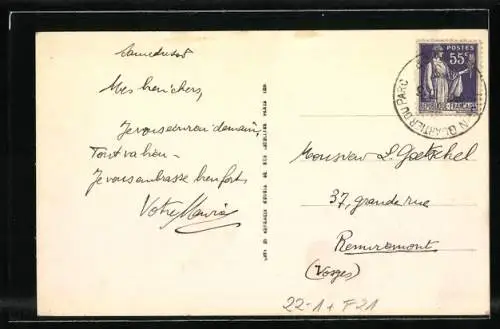 Samedi soir
Mes bien chers,
Je vous écrirai demain,
Tout va bien -
Je vous embrasse bien fort
Votre Maurice
POSTES
55c
REPUBLIQUE FRANCAISE
QUARTIER DU PARC
Monsieur L. Goetschel
37, grande rue
Remiremont
(Vosges)
22-1 + F21